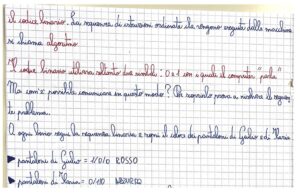 Il codice binario. La sequenza di istruzioni ordinate che vengono eseguite dalla macchina
si chiama algoritmo
Il codice binario utilizza soltanto due simboli: 0 e 1 con i quali il computer "parla"
Ma com'è possibile comunicare in questo modo? Per scoprirlo prova a risolvere il seguen
te problema.
A ogni bimbo segue la sequenza binaria e scopri il colore dei pantaloni di Giulio e di Ilaria
pantaloni di Giulio = 1/0/0 ROSSO
pantaloni di Ilaria = 0/1/0